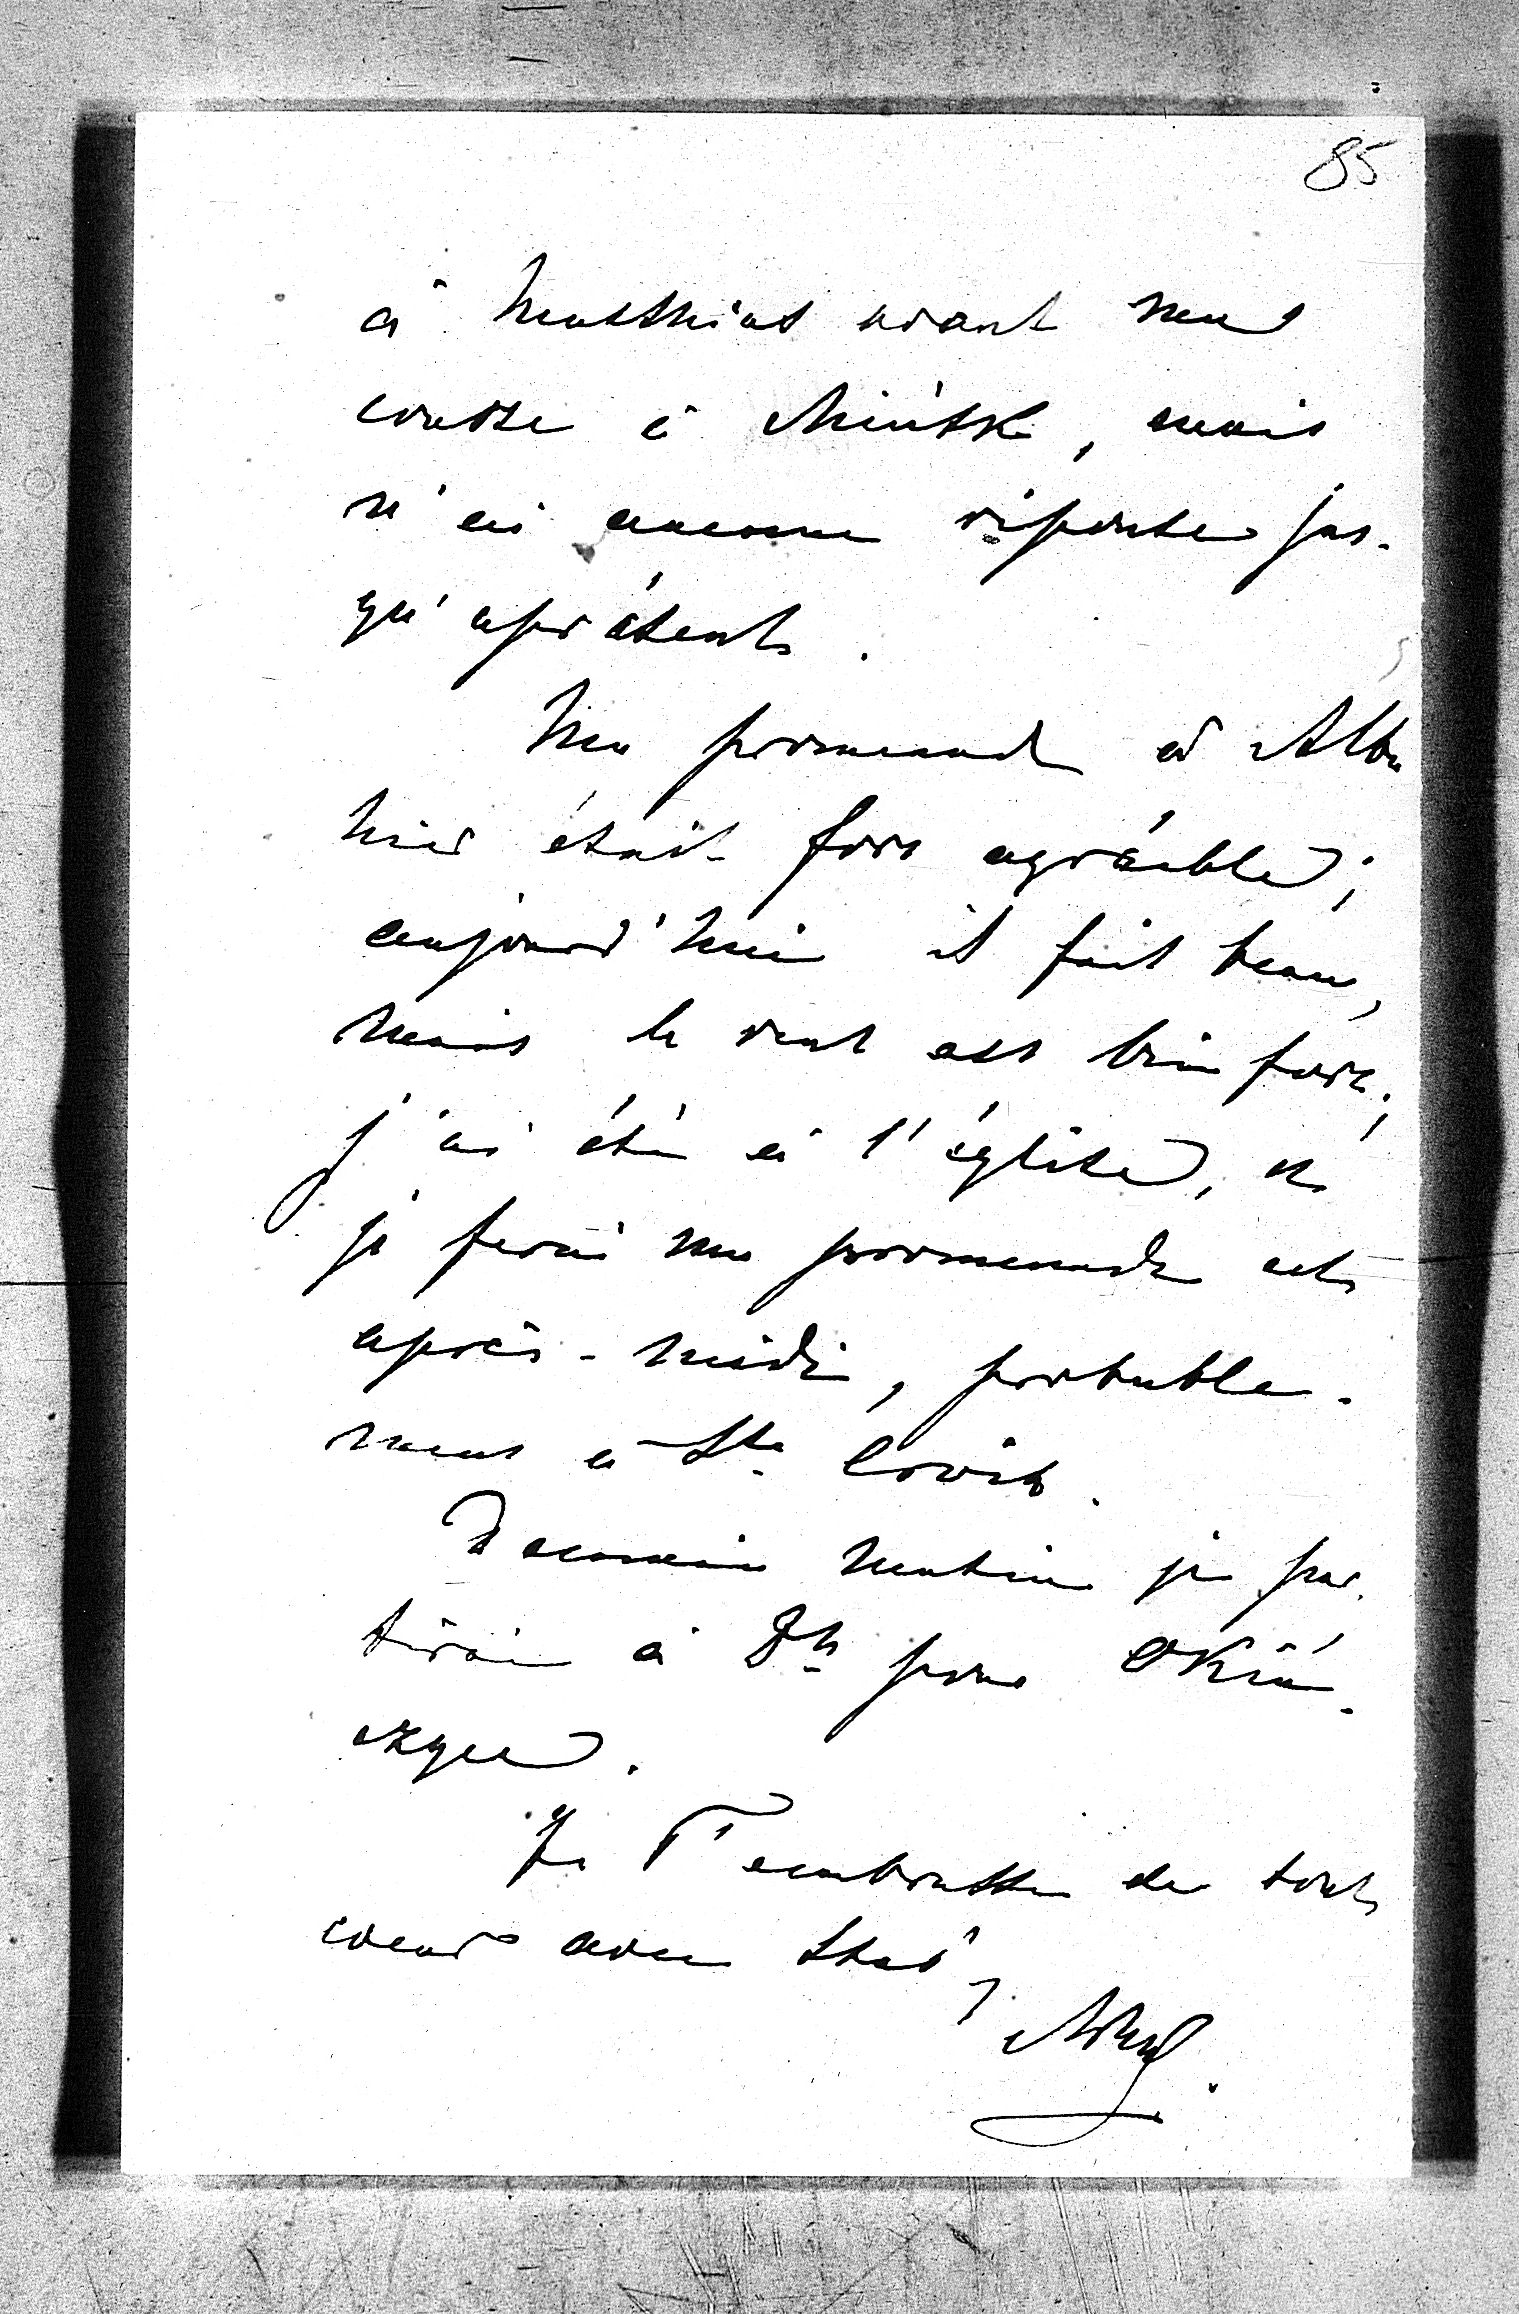 85
à Matthias avant ma
course à Minsk, mais
n'ai aucune réponse jus-
qu'aprésent.
Ma promenade à Alba
hier était fort agréable;
aujourd'hui il fait beau,
mais le vent est bien fort;
j'ai été à l'église, et
je ferai ma promenade cet
après-midi, probable-
ment à Ste Croix.
Demain matin je par-
tirai à 8h pour Okin-
czyce.
Je T'embrasse de tout
coeur avec Stas,